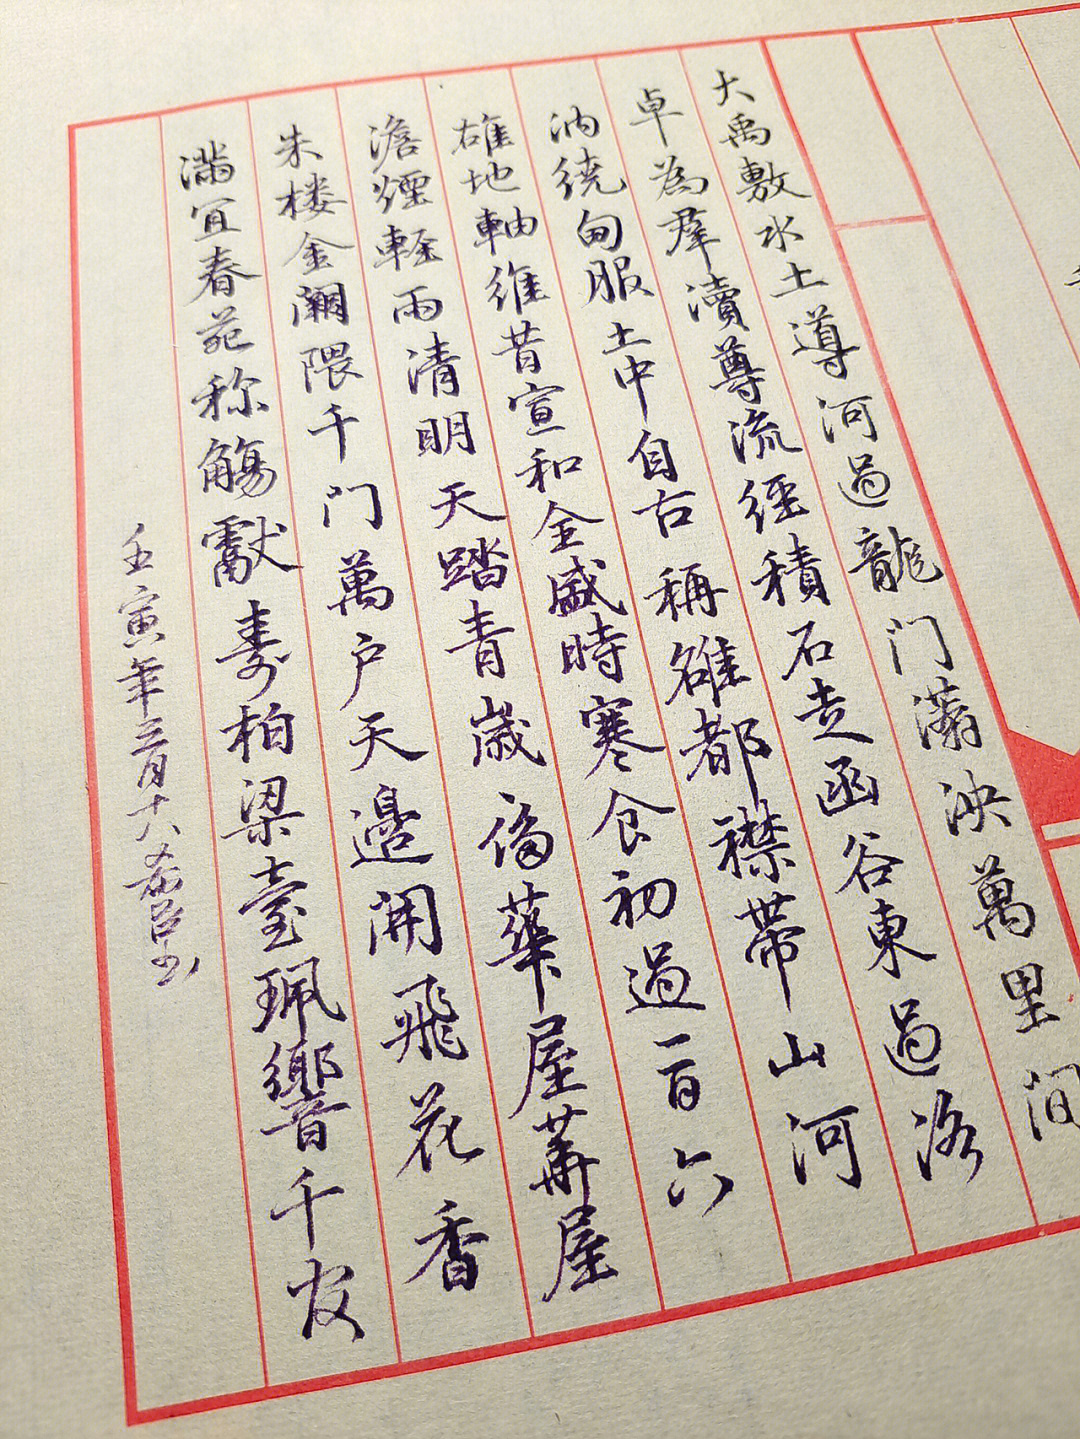 大禹敷水土導河過龍门瀚泱萬里间
卓為群瀆尊流經積石走函谷東過洛
汭繞甸服土中自古稱雒都襟帶山河
雄地軸維昔宣和全盛時寒食初過一百六
澹煙輕雨清明天踏青歲偽華屋華屋
朱楼金闕隈千门萬户天邊開飛花香
滿宜春苑称觴獻壽柏梁臺珮響千官
壬寅年三月十六